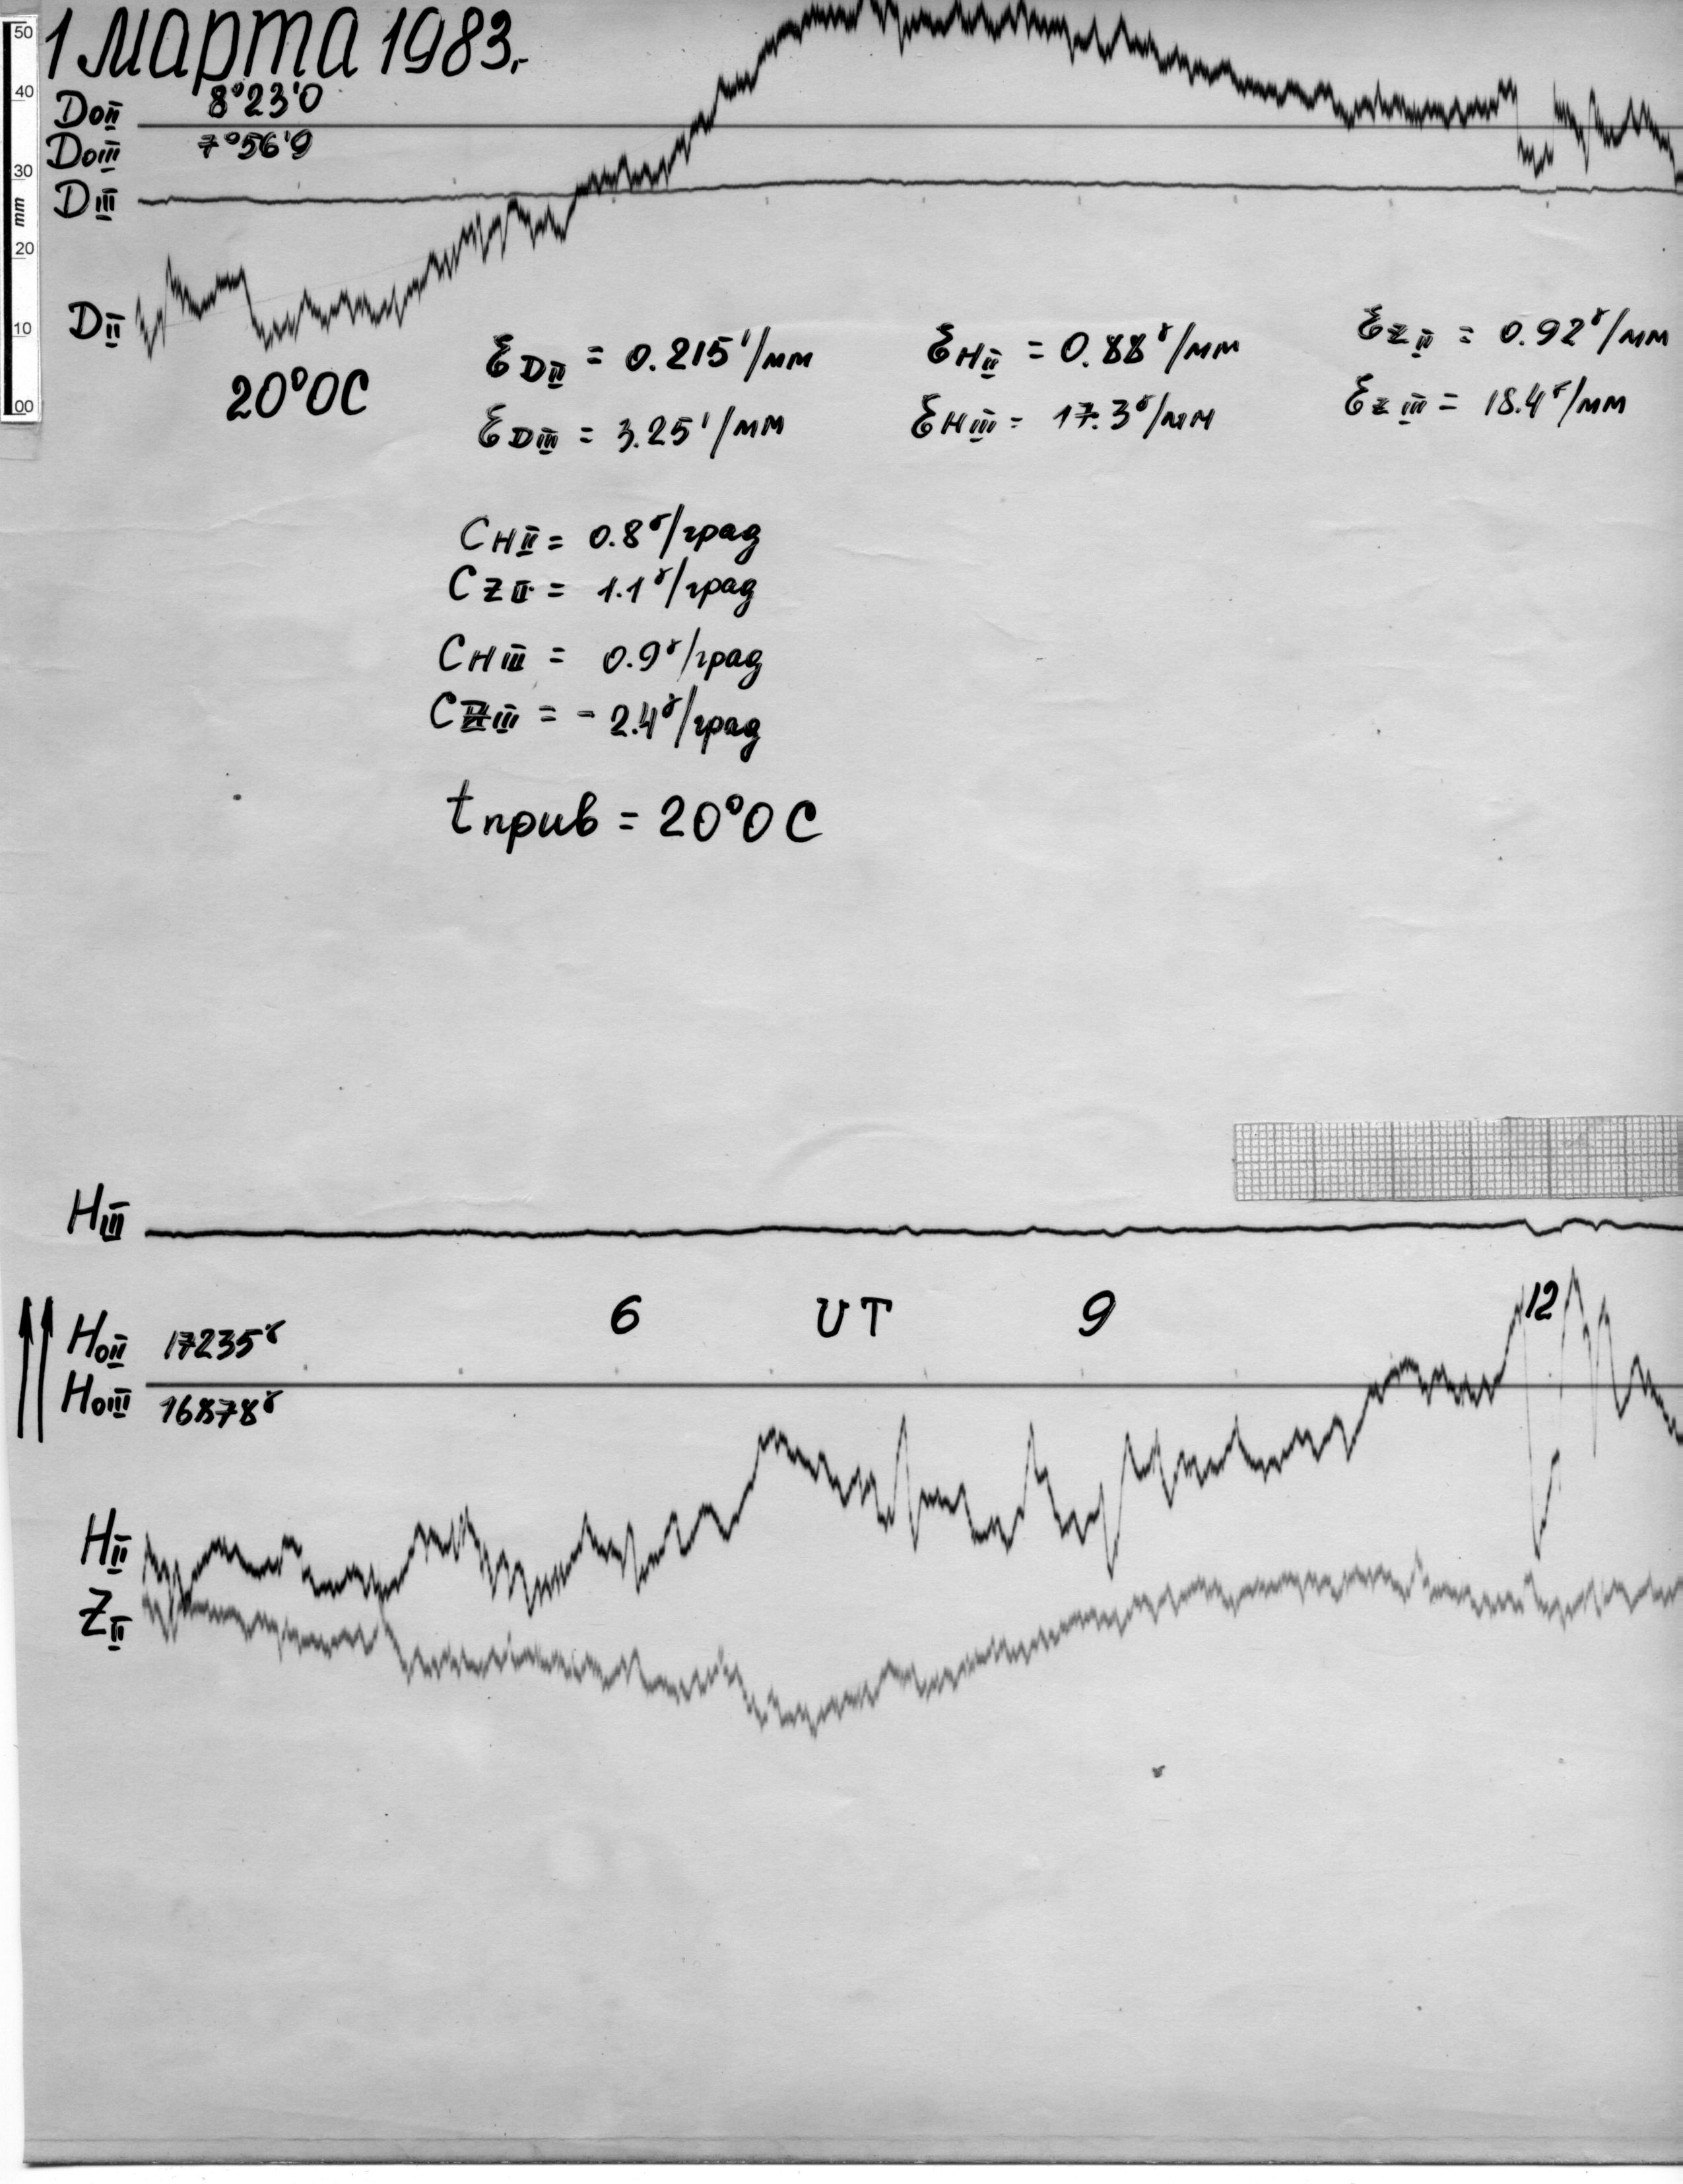 50
40
30
mm
20
10
00
1 марта 1983г.
D₀II 8°23'0
D₀III 7°56'9
DIII
DII
20°0C
ℰDII = 0.215'/мм
ℰHII = 0.88ᵞ/мм
ℰZII = 0.92ᵞ/мм
ℰDIII = 3.25'/мм
ℰHIII = 17.3ᵞ/мм
ℰZIII = 18.4ᵞ/мм
CHII = 0.8ᵞ/град
CZII = 1.1ᵞ/град
CHIII = 0.9ᵞ/град
CZIII = -2.4ᵞ/град
tприв = 20°0C
HIII
6 UT 9 12
H₀II 17235ᵞ
H₀III 16878ᵞ
HII
ZII